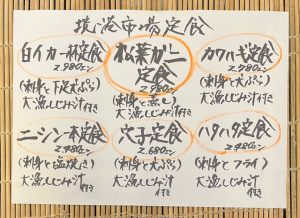 境港市場定食
白イカ一杯定食
2,980エン
(刺身と下足天ぷら)
大漁しじみ汁付き
松葉ガニ
定食
2,980エン
(刺身と蒸し)
大漁しじみ汁
付き
カワハギ定食
2,780エン
(刺身と天ぷら)
大漁しじみ汁付き
ニシン一本定食
2,480エン
(刺身と塩焼き)
大漁しじみ汁
付き
穴子定食
2,680エン
(刺身と天ぷら)
大漁しじみ汁
付き
ハタハタ定食
2,480エン
(刺身とフライ)
大漁しじみ汁
付き